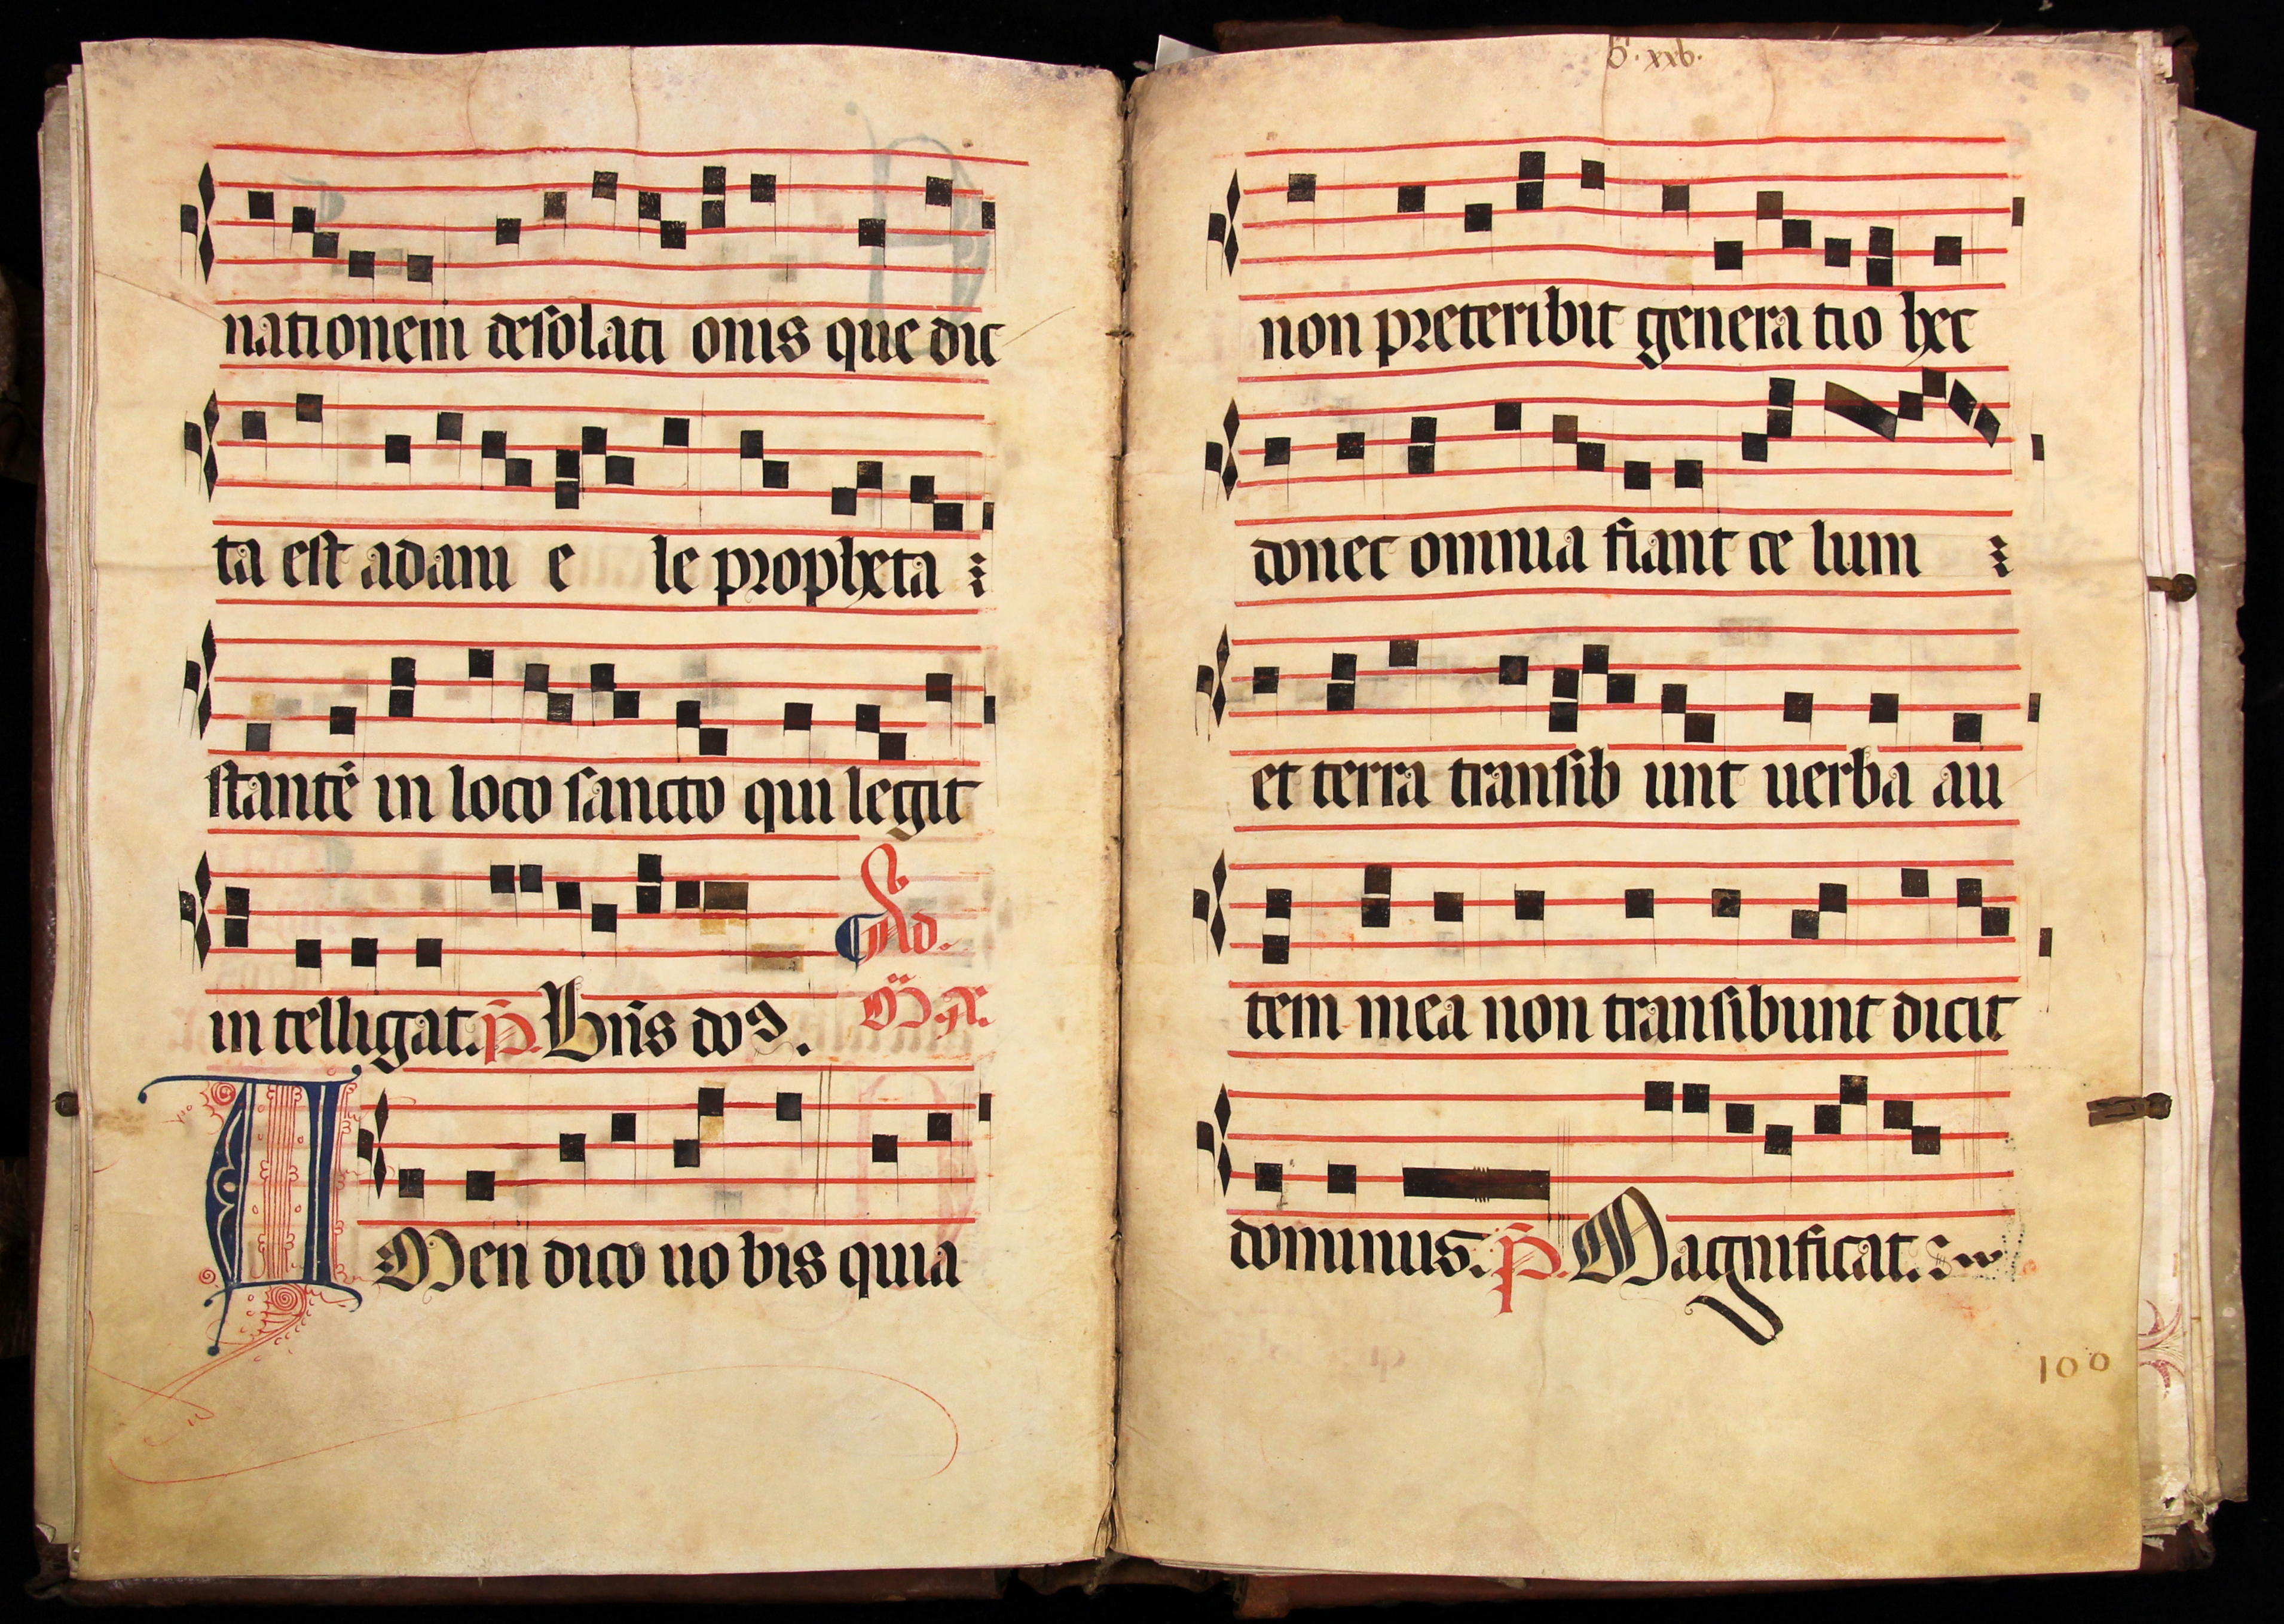 nationem desolati onis que dic
ta est adani e le propheta
stantē in loco sancto qui legit
in telligat. p̄. Bn̄s do⁹.
Ad.
AMen dico uo bis quia
non preteribit genera tio hec
donec omnia fiant ce lum
et terra transib unt uerba au
tem mea non transibunt dicit
dominus. p̄. Magnificat.
100